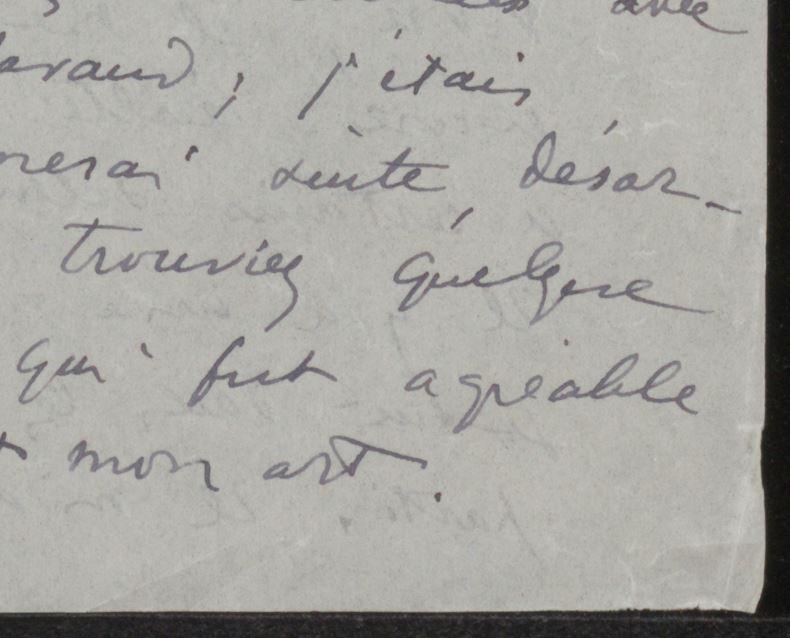 avec
; j'étais
suite, désor-
trouviez quelque
qui fut agréable
mon art.